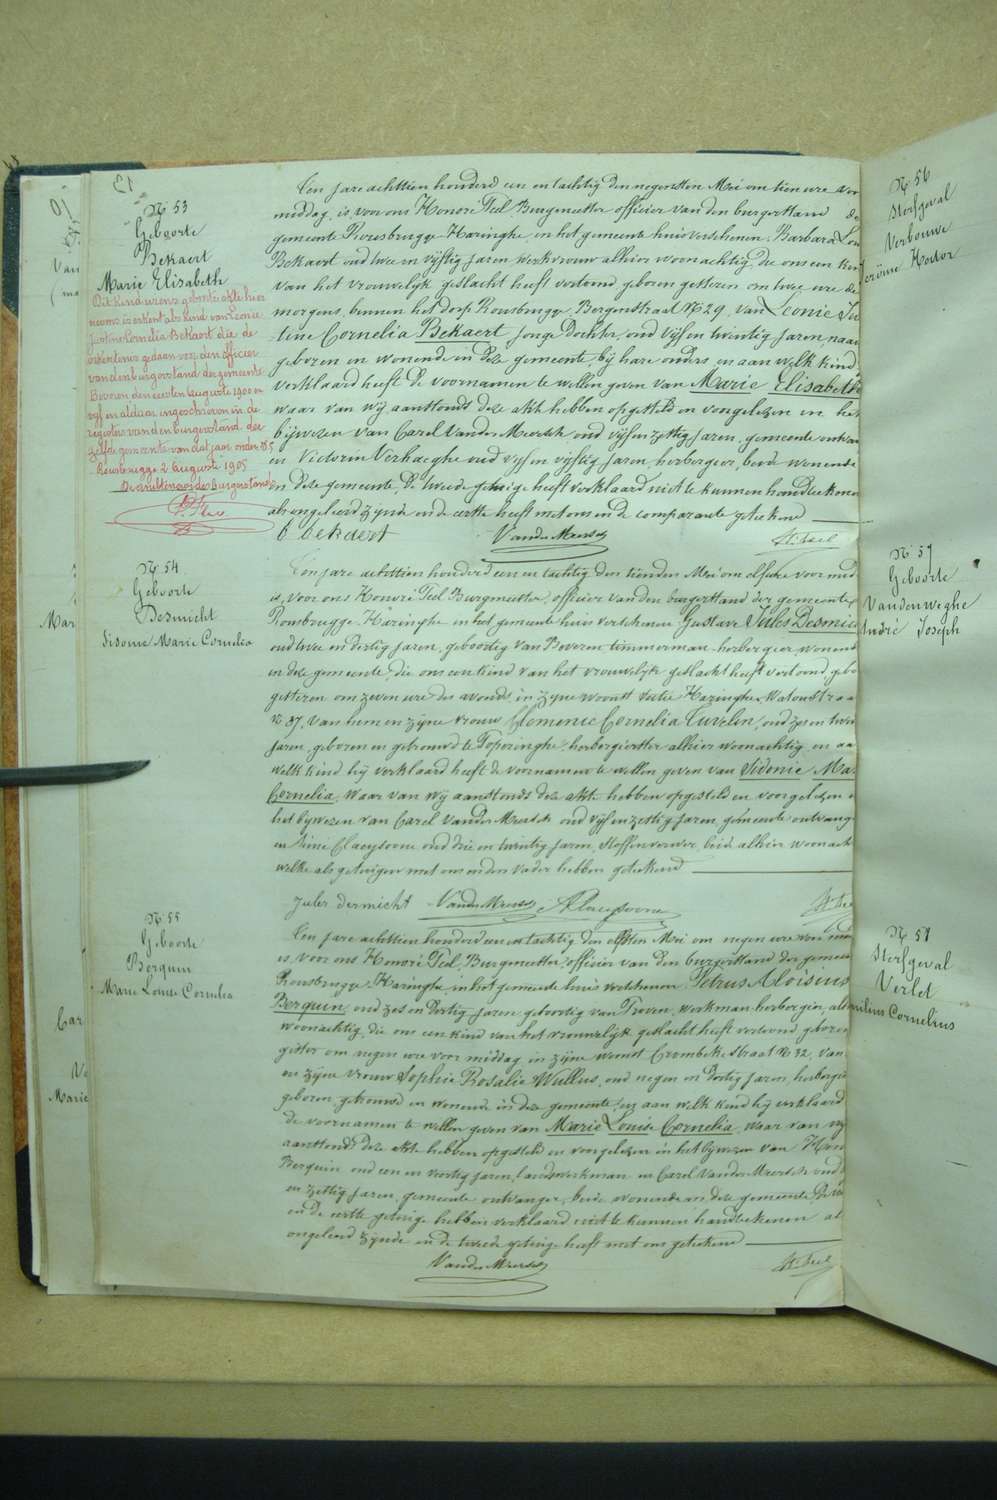 13
N: 53
Geboorte
Bekaert
Marie Elisabeth
Dit kind wiens geboorte akte hier
nevens is erkent als kind van Leonie
Justine Cornelia Bekaert die de
gedaan voor den officier
van den burgerstand der gemeente
Beveren den eersten Augusto 1900 en
vijf en aldaar ingeschreven in de
registers van den burgerstand der
zelfde gemeente van dat jaar onder N: 5
Rousbrugge 2 Augusto 1905
De ambtenaar des burgerstands
Een jare achttien honderd een en tachtig den negensten Mei om tien ure voor
middag, is voor ons Honoré Teel Burgmeester officier van den burgerstand de
gemeente Rousbrugge-Haringhe, in het gemeente huis verschenen Barbara
Bekaert oud twee en vijftig jaren, werkvrouw alhier woonachtig, die ons een kin
van het vrouwelijk geslacht heeft vertoond geboren gisteren om twee ure de
morgens, binnen het dorp Rousbrugge Bergenstraat N: 29, van Leonie Ju
tine Cornelia Bekaert jonge dochter, oud vijf en twintig jaren, naai
geboren en wonende in deze gemeente, bij hare ouders, en aan welk kind
verklaard heeft de voornamen te willen geven van Marie Elisabeth
waar van wij aanstonds deze akte hebben opgesteld en voorgelezen in het
bijwezen van Carel Vander Meersch oud vijf en zestig jaren, gemeente ontvan
en Victorin Verhaeghe oud vijf en vijftig jaren, herbergier, beide wonende
in deze gemeente, De tweede getuige heeft verklaard niet te kunnen handteekenen
als ongeleerd zijnde en de eerste heeft met ons en de comparante geteekend
b bekaert VanderMeersch H. Teel
N: 54
Geboorte
Desmicht
Sidonie Marie Cornelia
Een jare achttien honderd een en tachtig den tienden Mei om elf ure voor mid
is, voor ons Honoré Teel Burgmeester, officier van den burgerstand der gemeente
Rousbrugge-Haringhe in het gemeente huis verschenen Gustave Jules Desmic
oud twee en dertig jaren, geboortig van Beveren timmerman-herbergier wonend
in deze gemeente, die ons een kind van het vrouwelijk geslacht heeft vertoond gebo
gisteren om zeven ure des avonds, in zijne woonst sectie Haringhe, Watoustraa
N: 37, van hem en zijne vrouw Clemence Cornelia Tuvelin, oud zes en twin
jaren, geboren en getrouwd te Poperinghe, herbergierster alhier woonachtig, en aa
welk kind hij verklaard heeft de voornamen te willen geven van Sidonie Ma
Cornelia. Waar van wij aanstonds deze akte hebben opgesteld en voorgelezen
het bijwezen van Carel Vander Meersch oud vijf en zestig jaren, gemeente ontvang
en Aimé Claeysoone oud drie en twintig jaren, stoffenverwer, beide alhier woonach
welke als getuigen met ons en den vader hebben geteekend
Jules desmicht VanderMeersch AClaeysoone H. Te
N: 55
Geboorte
Berquin
Marie Louise Cornelia
Een jare achttien honderd een en tachtig den elfsten Mei om negen ure voor mid
is, voor ons Honoré Teel, Burgmeester, officier van den burgerstand der gemeen
Rousbrugge-Haringhe, in het gemeente huis verschenen Petrus Aloïsius
Berquin, oud zes en dertig jaren geboortig van Proven, werkman herbergier, alh
woonachtig, die ons een kind van het vrouwelijk geslacht heeft vertoond, geboren
gister om negen ure voor middag, in zijne woonst Crombekestraat N: 32, van
en zijne vrouw Sophie Rosalie Wullus, oud negen en dertig jaren, herbergie
geboren, getrouwd en wonende in deze gemeente, en aan welk kind hij verklaard
de voornamen te willen geven van Marie Louise Cornelia, waar van wij
aanstonds deze akte hebben opgesteld en voorgelezen in het bijwezen van Hen
Berquin oud een en veertig jaren, landwerkman en Carel Vander Meersch oud
en zestig jaren, gemeente ontvanger, beide wonende in deze gemeente, De va
en de eerste getuige hebben verklaard niet te kunnen handteekenen al
ongeleerd zijnde en de tweede getuige heeft met ons geteekend
VanderMeersch H. Teel
N: 56
Sterfgeval
Verbouwe
N: 57
Geboorte
Vandenweghe
André Joseph
N: 58
Sterfgeval
Verlet
milius Cornelius